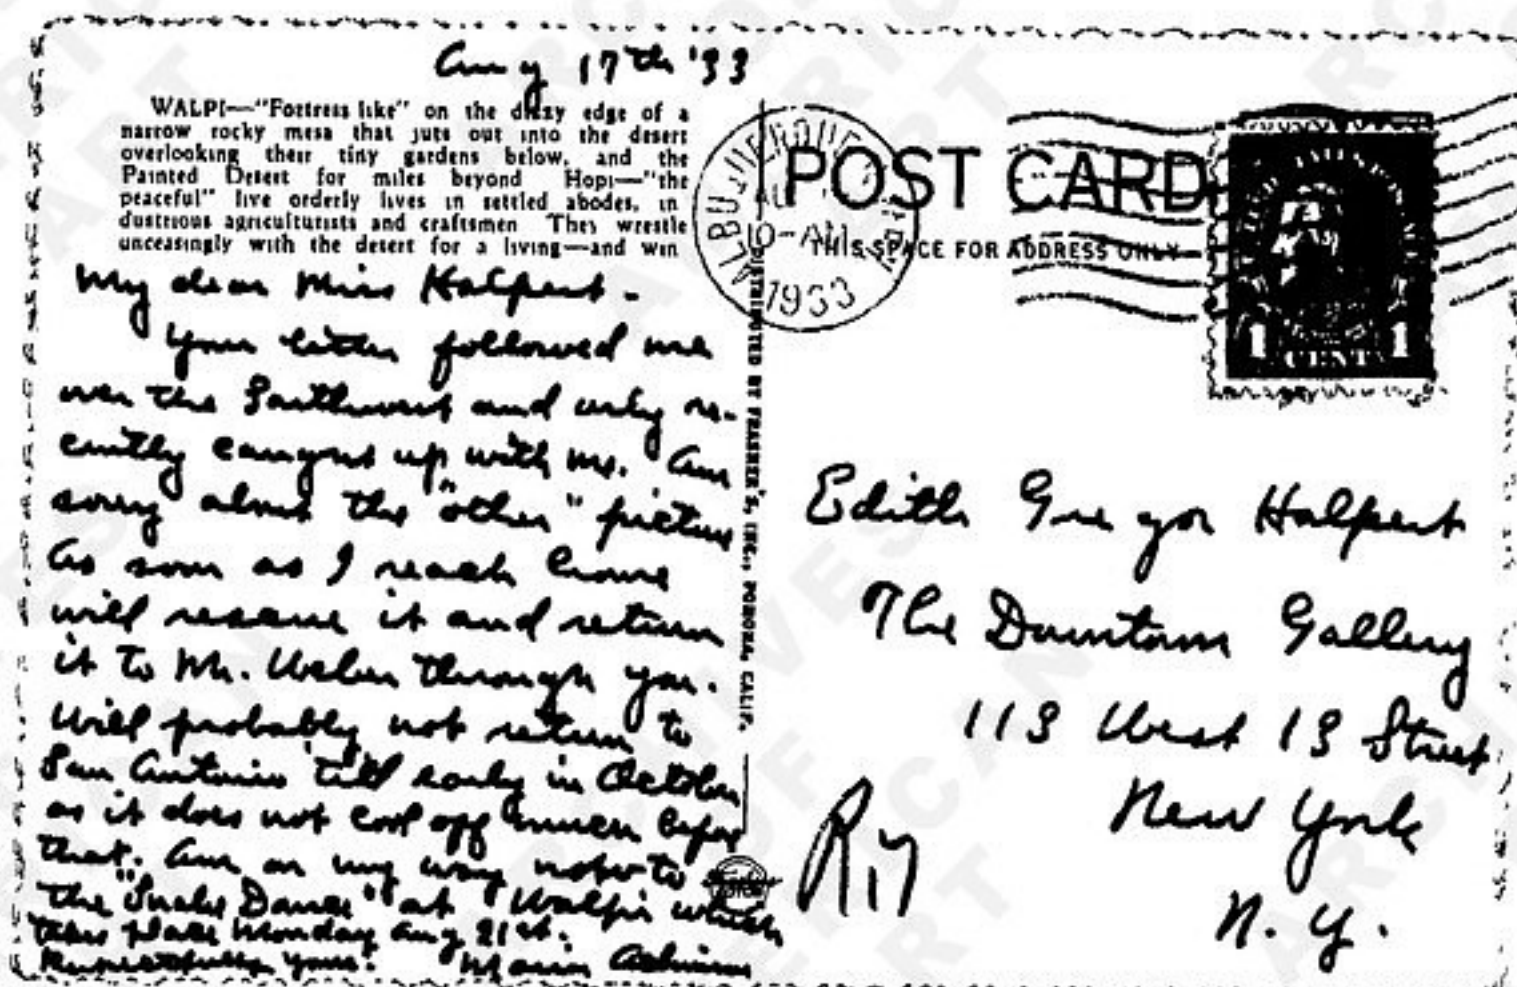 Aug 17th '33
WALPI—"Fortress like" on the dizzy edge of a
narrow rocky mesa that juts out into the desert
overlooking their tiny gardens below, and the
Painted Desert for miles beyond Hopi—"the
peaceful" live orderly lives in settled abodes, in
dustrious agriculturists and craftsmen They wrestle
unceasingly with the desert for a living—and win
My dear Miss Halpert -
Your letter followed me
over the Southwest and only re-
cently caught up with me. Am
sorry about the "other" picture
As soon as I reach home
will rescue it and return
it to Mr. Weber through you.
Will probably not return to
San Antonio till early in October
as it does not cool off much before
that. Am on my way now to
the "Snake Dance" at Walpi which
takes place Monday Aug 21st.
Respectfully yours.
DISTRIBUTED BY FRASHER'S, INC., POMONA, CALIF.
ALBUQUERQUE
10-AM
1933
POST CARD
THIS SPACE FOR ADDRESS ONLY
1 CENT 1
Edith Gregor Halpert
The Downtown Gallery
113 West 13 Street
New York
N. Y.